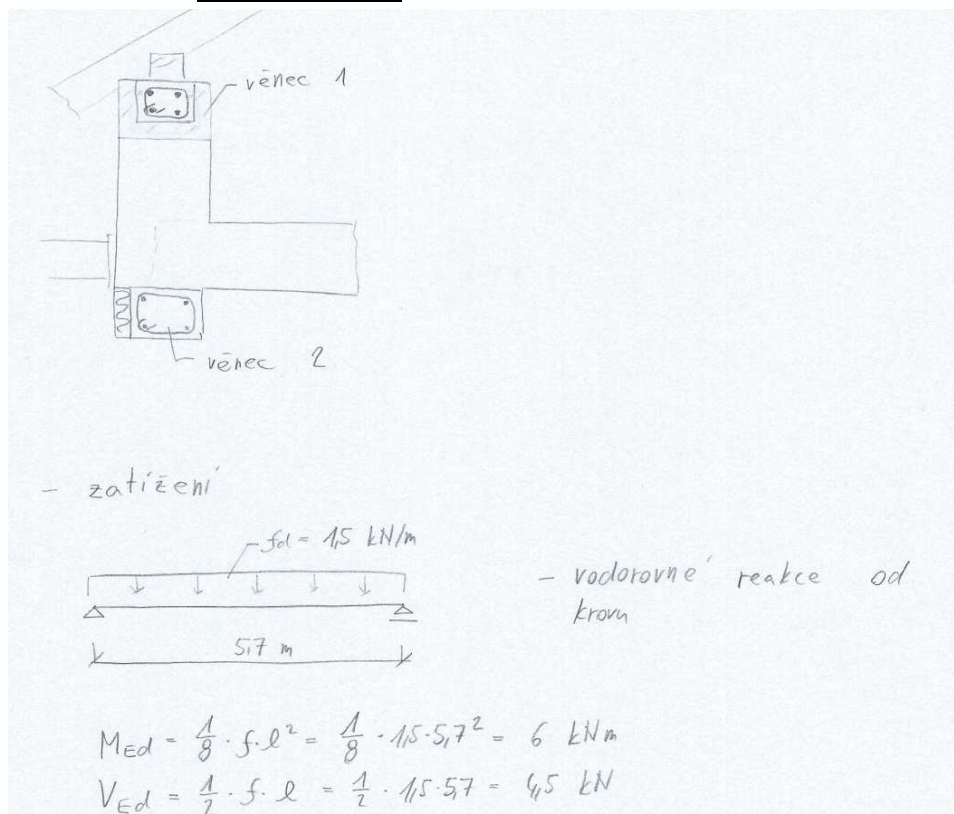 věnec 1
věnec 2
- zatížení
fd = 1,5 kN/m
- vodorovné reakce od
krovu
5,7 m
MEd = 1/8 · f · l² = 1/8 · 1,5 · 5,7² = 6 kNm
VEd = 1/2 · f · l = 1/2 · 1,5 · 5,7 = 4,5 kN